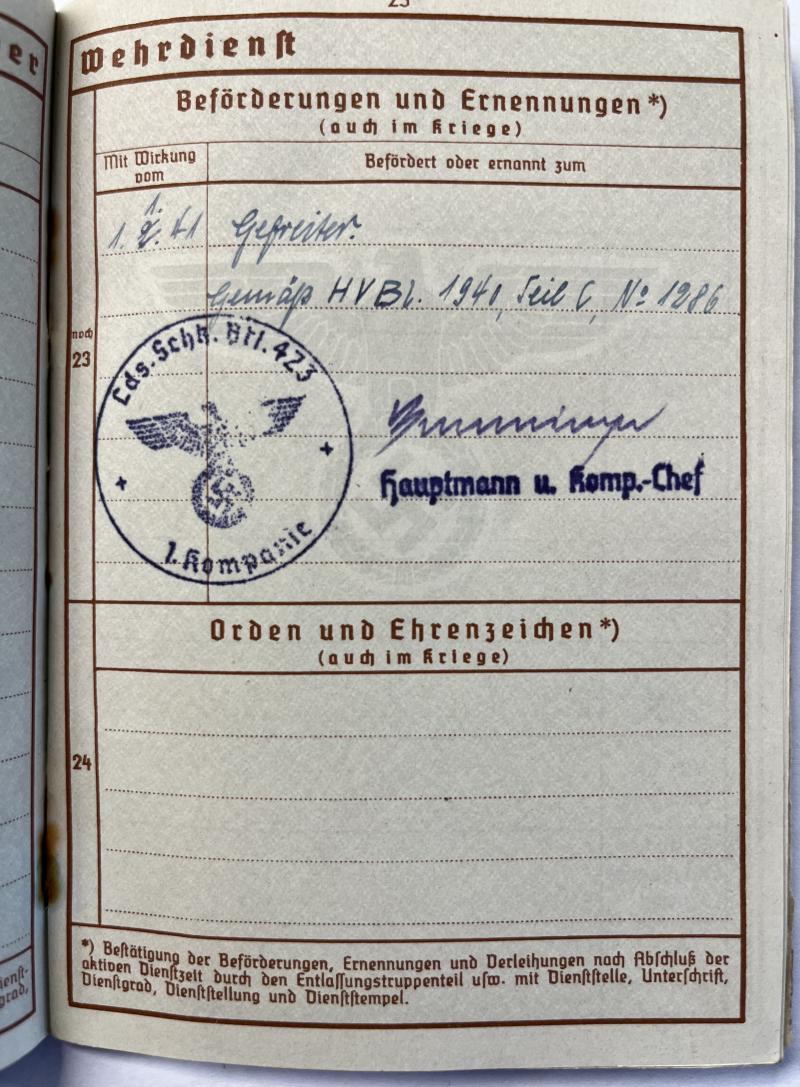 Wehrdienst
Beförderungen und Ernennungen *)
(auch im Kriege)
Mit Wirkung
vom
Befördert oder ernannt zum
1.
1. 2. 41 Gefreiter.
Gemäß HVBl. 1940, Teil C, No 1286
noch
23
Lds. Schtz. Btl. 423
1. Kompanie
Hauptmann u. Komp.-Chef
Orden und Ehrenzeichen *)
(auch im Kriege)
24
*) Bestätigung der Beförderungen, Ernennungen und Verleihungen nach Abschluß der
aktiven Dienstzeit durch den Entlassungstruppenteil usw. mit Dienststelle, Unterschrift,
Dienstgrad, Dienststellung und Dienststempel.